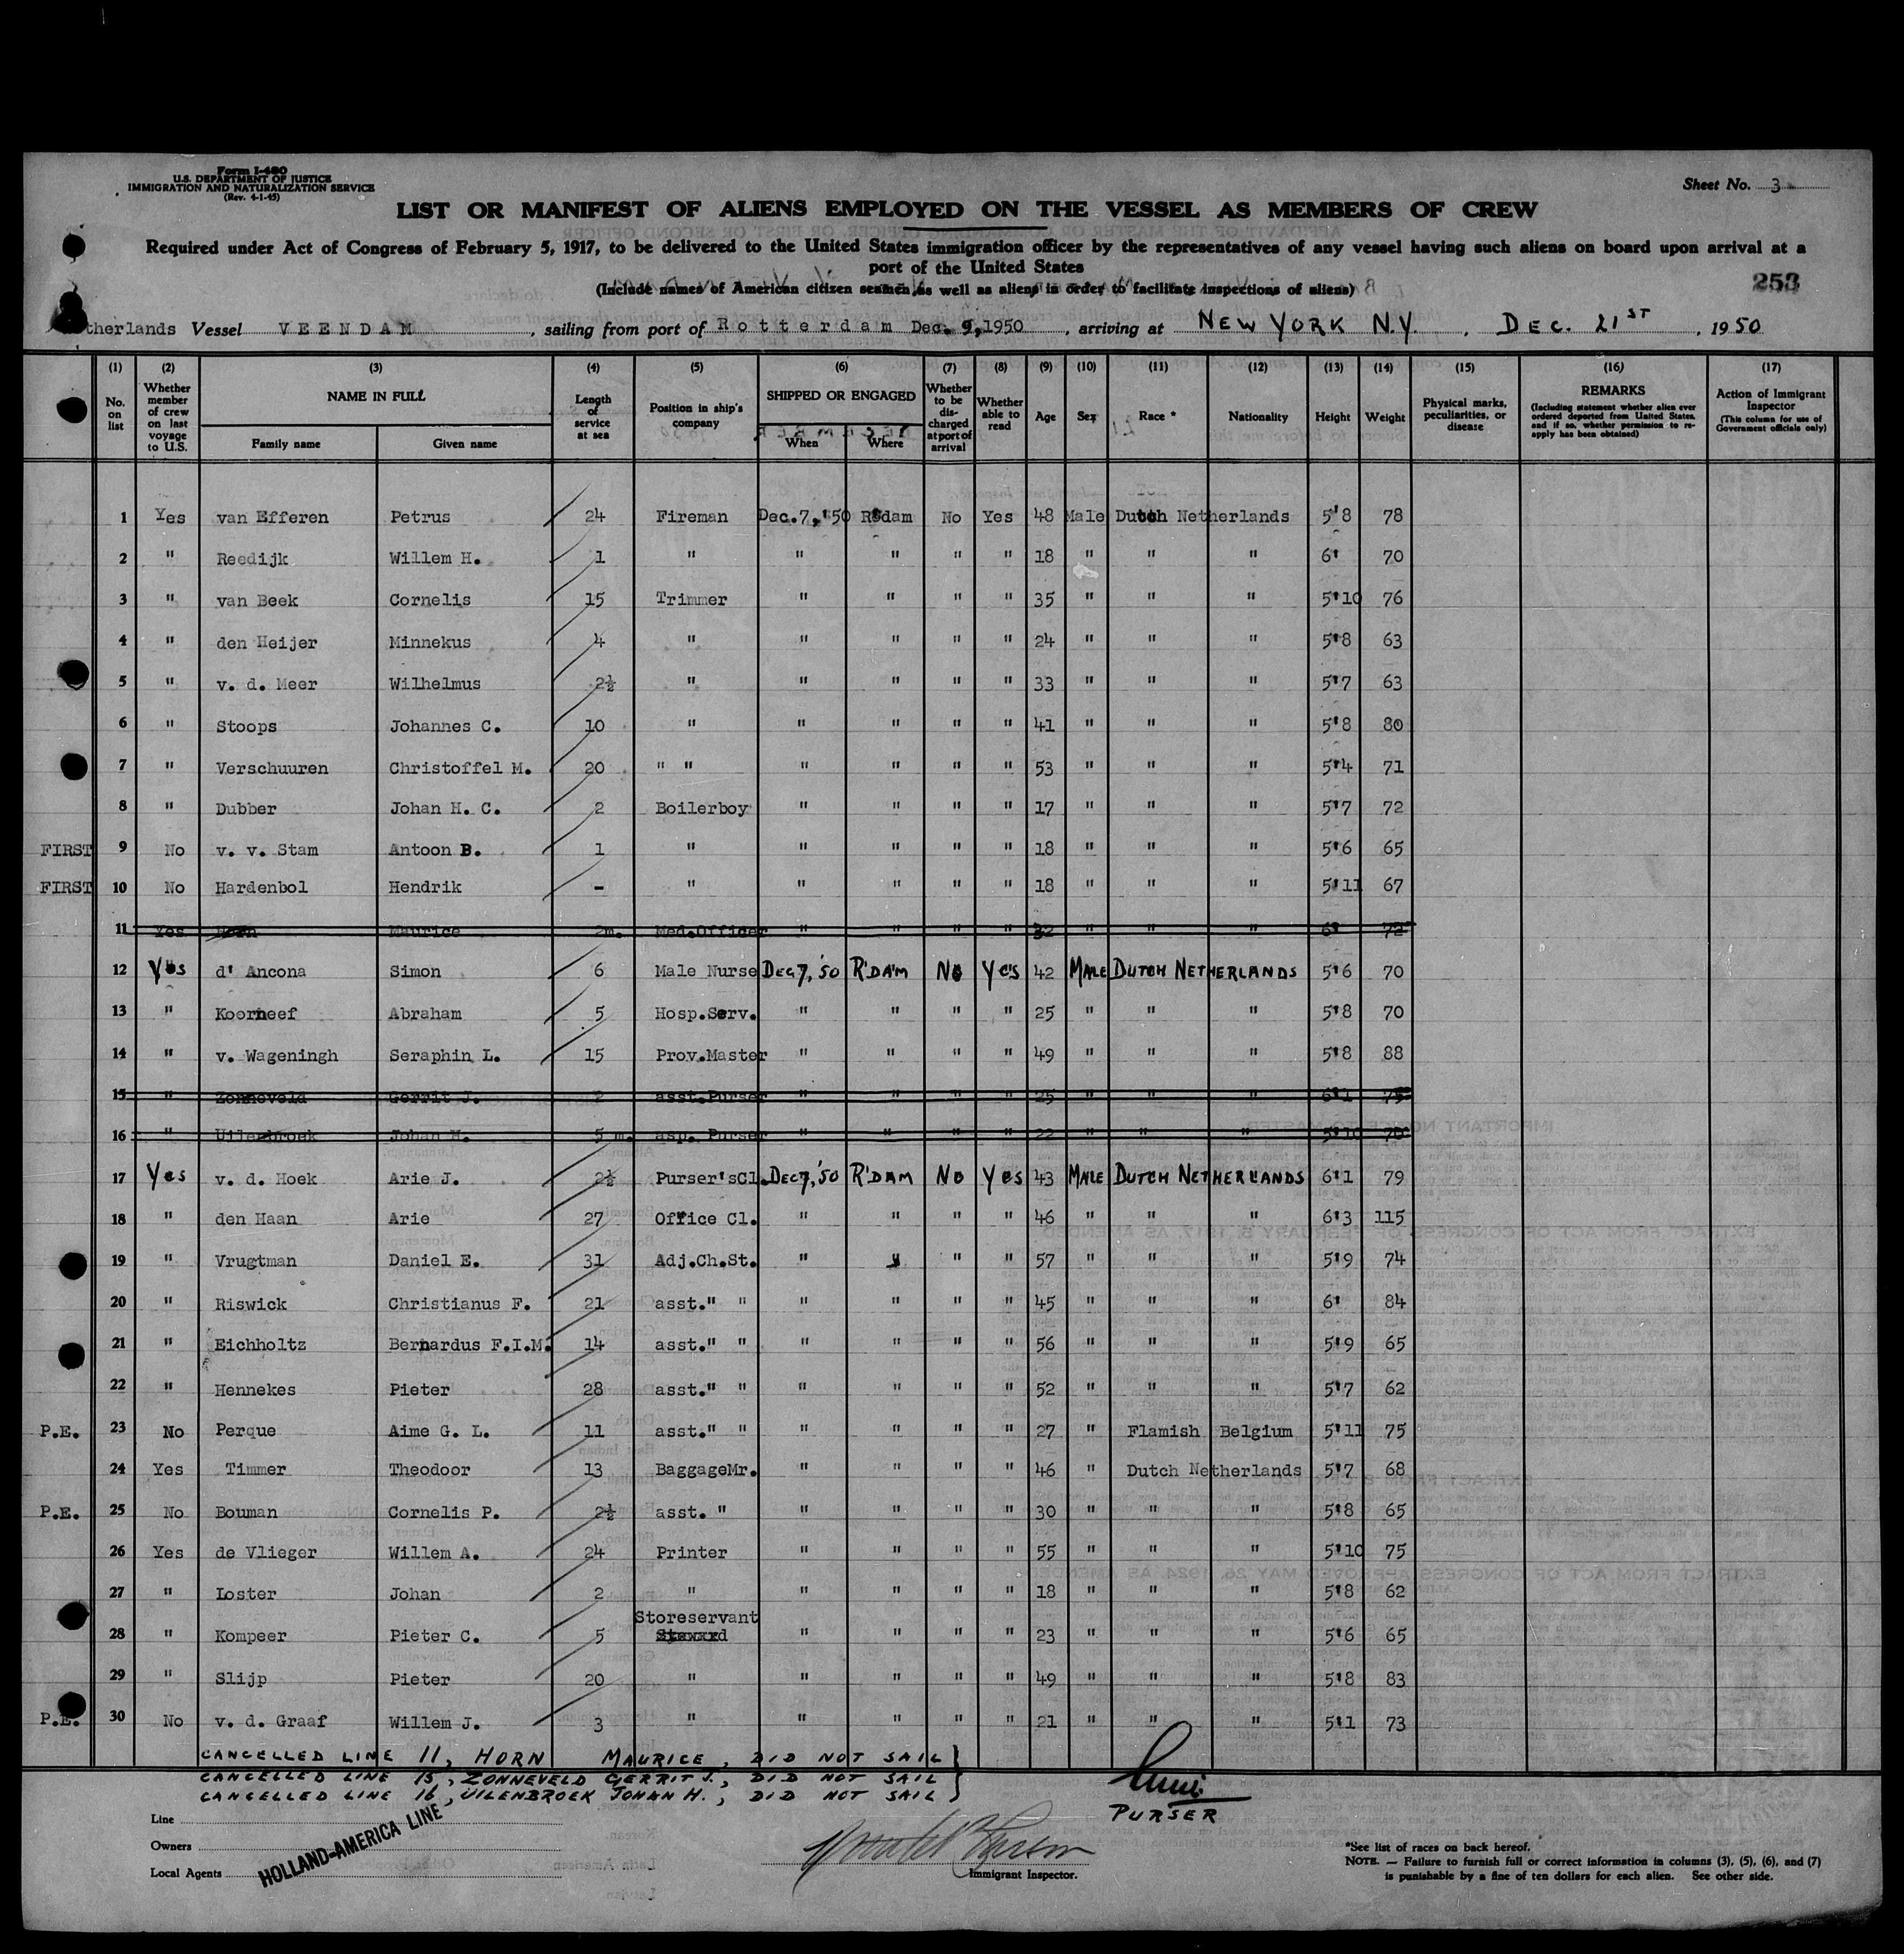 Form I-480
U.S. DEPARTMENT OF JUSTICE
IMMIGRATION AND NATURALIZATION SERVICE
(Rev. 4-1-45)
Sheet No. 3
LIST OR MANIFEST OF ALIENS EMPLOYED ON THE VESSEL AS MEMBERS OF CREW
Required under Act of Congress of February 5, 1917, to be delivered to the United States immigration officer by the representatives of any vessel having such aliens on board upon arrival at a
port of the United States
(Include names of American citizen seamen as well as aliens in order to facilitate inspections of aliens)
253
therlands Vessel VEENDAM, sailing from port of Rotterdam Dec. 9, 1950, arriving at NEW YORK N.Y., DEC. 21ST, 1950
(1) (2) (3) (4) (5) (6) (7) (8) (9) (10) (11) (12) (13) (14) (15) (16) (17)
No. on list
Whether member of crew on last voyage to U.S.
NAME IN FULL
Family name
Given name
Length of service at sea
Position in ship's company
SHIPPED OR ENGAGED
When
Where
Whether to be discharged at port of arrival
Whether able to read
Age
Sex
Race *
Nationality
Height
Weight
Physical marks, peculiarities, or disease
REMARKS
(Including statement whether alien ever ordered deported from United States, and if so, whether permission to re-apply has been obtained)
Action of Immigrant Inspector
(This column for use of Government officials only)
1 Yes van Efferen Petrus 24 Fireman Dec.7,'50 R'dam No Yes 48 Male Dutch Netherlands 5'8 78
2 " Reedijk Willem H. 1 " " " " " 18 " " " 6' 70
3 " van Beek Cornelis 15 Trimmer " " " " 35 " " " 5'10 76
4 " den Heijer Minnekus 4 " " " " " 24 " " " 5'8 63
5 " v. d. Meer Wilhelmus 2½ " " " " " 33 " " " 5'7 63
6 " Stoops Johannes C. 10 " " " " " 41 " " " 5'8 80
7 " Verschuuren Christoffel M. 20 " " " " " " 53 " " " 5'4 71
8 " Dubber Johan H. C. 2 Boilerboy " " " " 17 " " " 5'7 72
FIRST 9 No v. v. Stam Antoon B. 1 " " " " " 18 " " " 5'6 65
FIRST 10 No Hardenbol Hendrik - " " " " " 18 " " " 5'11 67
11 Yes Horn Maurice 2m. Med.Officer " " " " 32 " " " 6' 72
12 Yes d' Ancona Simon 6 Male Nurse DEC 7, '50 R'DAM No Yes 42 MALE DUTCH NETHERLANDS 5'6 70
13 " Koorneef Abraham 5 Hosp.Serv. " " " " 25 " " " 5'8 70
14 " v. Wageningh Seraphin L. 15 Prov.Master " " " " 49 " " " 5'8 88
15 " Zonneveld Gerrit J. 2 asst.Purser " " " " 25 " " " 6'1 75
16 " Uilenbroek Johan H. 5 m. asp. Purser " " " " 22 " " " 5'10 70
17 Yes v. d. Hoek Arie J. 2½ Purser'sCl. DEC 7, '50 R'DAM No Yes 43 MALE DUTCH NETHERLANDS 6'1 79
18 " den Haan Arie 27 Office Cl. " " " " 46 " " " 6'3 115
19 " Vrugtman Daniel E. 31 Adj.Ch.St. " " " " 57 " " " 5'9 74
20 " Riswick Christianus F. 21 asst." " " " " " 45 " " " 6' 84
21 " Eichholtz Bernardus F.I.M. 14 asst." " " " " " 56 " " " 5'9 65
22 " Hennekes Pieter 28 asst." " " " " " 52 " " " 5'7 62
P.E. 23 No Perque Aime G. L. 11 asst." " " " " " 27 " Flamish Belgium 5'11 75
24 Yes Timmer Theodoor 13 BaggageMr. " " " " 46 " Dutch Netherlands 5'7 68
P.E. 25 No Bouman Cornelis P. 2½ asst. " " " " " 30 " " " 5'8 65
26 Yes de Vlieger Willem A. 24 Printer " " " " 55 " " " 5'10 75
27 " Loster Johan 2 " " " " " 18 " " " 5'8 62
Storeservant
28 " Kompeer Pieter C. 5 Steward " " " " 23 " " " 5'6 65
29 " Slijp Pieter 20 " " " " " 49 " " " 5'8 83
P.E. 30 No v. d. Graaf Willem J. 3 " " " " " 21 " " " 5'1 73
CANCELLED LINE 11, HORN MAURICE, DID NOT SAIL
CANCELLED LINE 15, ZONNEVELD GERRIT J., DID NOT SAIL
CANCELLED LINE 16, UILENBROEK JOHAN H., DID NOT SAIL
PURSER
Line
Owners
Local Agents
HOLLAND-AMERICA LINE
Immigrant Inspector.
*See list of races on back hereof.
NOTE. — Failure to furnish full or correct information in columns (3), (5), (6), and (7)
is punishable by a fine of ten dollars for each alien. See other side.